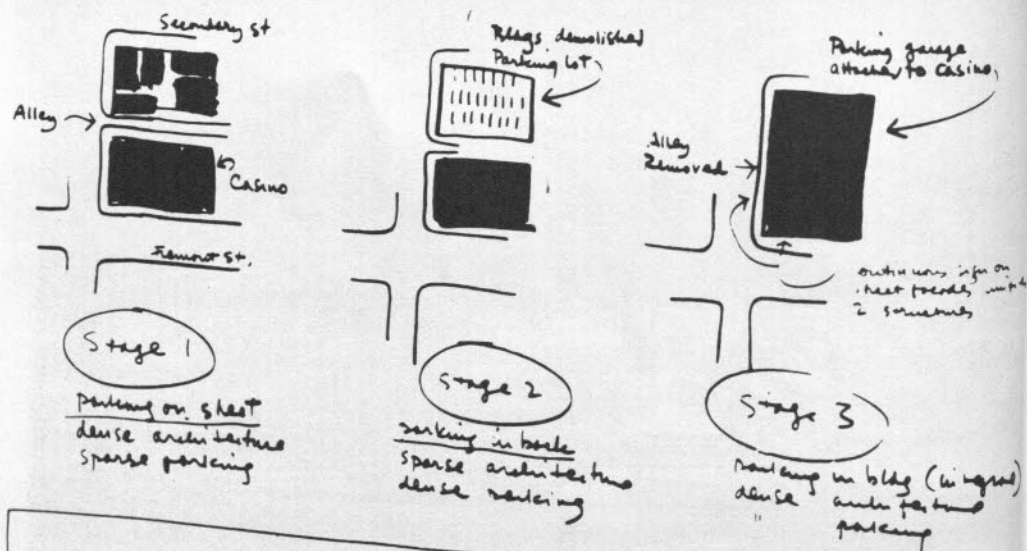 Secondary St
Alley
Casino
Fremont St.
Stage 1
parking on street
dense architecture
sparse parking
Bldgs. demolished
Parking lot
Stage 2
parking in back
sparse architecture
dense parking
Parking garage
attached to Casino
Alley
Removed
continuous sign on
street facades
2 structures
Stage 3
parking in bldg (integral)
dense architecture
" parking